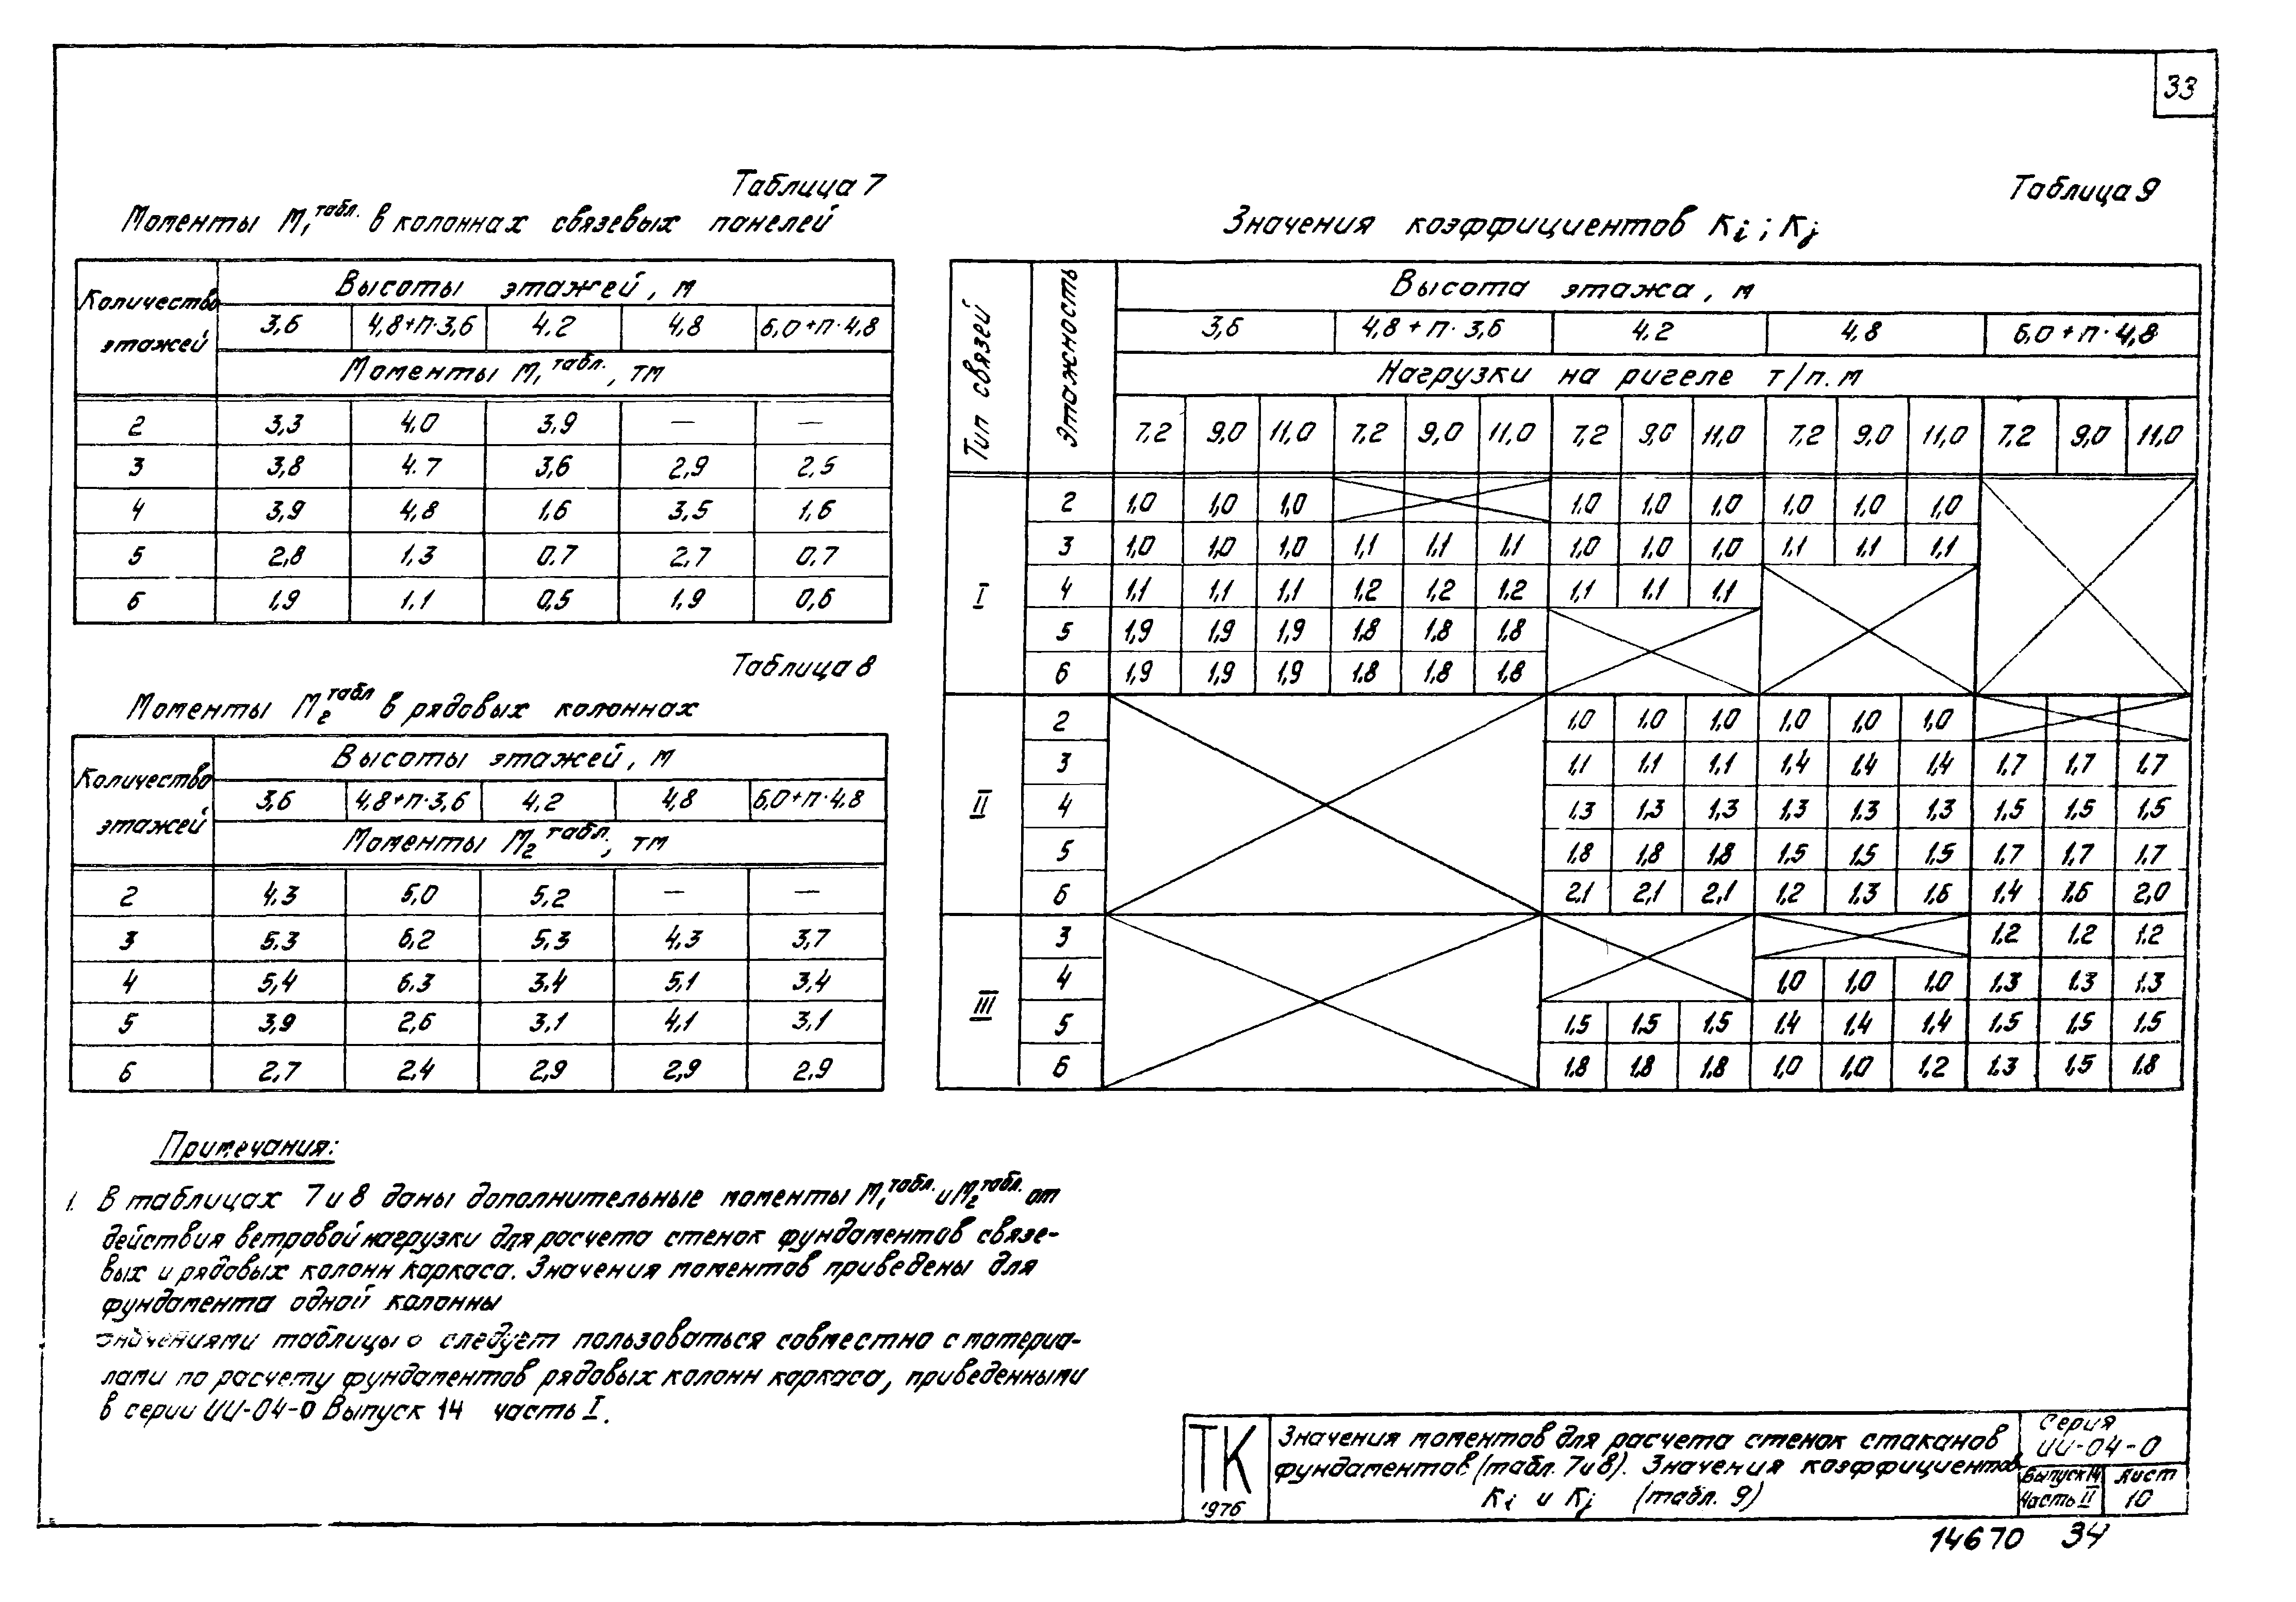 33
Таблица 7
Моменты М₁ табл. в колоннах связевых панелей
Количество этажей | Высоты этажей, м
3,6 | 4,8+п·3,6 | 4.2 | 4,8 | 6,0+п·4,8
Моменты М₁ табл., тм
2 | 3,3 | 4,0 | 3.9 | — | —
3 | 3,8 | 4.7 | 3,6 | 2,9 | 2,5
4 | 3,9 | 4,8 | 1,6 | 3,5 | 1,6
5 | 2,8 | 1,3 | 0.7 | 2,7 | 0,7
6 | 1,9 | 1,1 | 0,5 | 1,9 | 0,6
Таблица 8
Моменты М₂ табл в рядовых колоннах
Количество этажей | Высоты этажей, м
3,6 | 4,8+п·3,6 | 4,2 | 4,8 | 6,0+п·4,8
Моменты М₂ табл., тм
2 | 4,3 | 5,0 | 5,2 | — | —
3 | 5,3 | 6,2 | 5,3 | 4,3 | 3,7
4 | 5,4 | 6,3 | 3,4 | 5,1 | 3,4
5 | 3,9 | 2,6 | 3,1 | 4,1 | 3,1
6 | 2,7 | 2,4 | 2,9 | 2,9 | 2,9
Таблица 9
Значения коэффициентов Кi ; Кj
Тип связей | Этажность | Высота этажа, м
3,6 | 4,8 + п· 3,6 | 4.2 | 4,8 | 6,0 + п· 4,8
Нагрузки на ригеле т/п.м
7,2 | 9,0 | 11,0 | 7,2 | 9,0 | 11,0 | 7,2 | 9,0 | 11,0 | 7,2 | 9,0 | 11,0 | 7,2 | 9,0 | 11,0
I
2 | 1,0 | 1,0 | 1,0 | 1,0 | 1,0 | 1,0 | 1,0 | 1,0 | 1,0
3 | 1,0 | 1,0 | 1,0 | 1,1 | 1,1 | 1,1 | 1,0 | 1,0 | 1,0 | 1,1 | 1,1 | 1,1
4 | 1,1 | 1,1 | 1,1 | 1,2 | 1,2 | 1,2 | 1,1 | 1,1 | 1,1
5 | 1,9 | 1,9 | 1,9 | 1,8 | 1,8 | 1,8
6 | 1,9 | 1,9 | 1,9 | 1,8 | 1,8 | 1,8
II
2 | 1,0 | 1,0 | 1,0 | 1,0 | 1,0 | 1,0
3 | 1,1 | 1,1 | 1,1 | 1,4 | 1,4 | 1,4 | 1,7 | 1,7 | 1,7
4 | 1,3 | 1,3 | 1,3 | 1,3 | 1,3 | 1,3 | 1,5 | 1,5 | 1,5
5 | 1,8 | 1,8 | 1,8 | 1,5 | 1,5 | 1,5 | 1,7 | 1,7 | 1,7
6 | 2,1 | 2,1 | 2,1 | 1,2 | 1,3 | 1,6 | 1,4 | 1,6 | 2,0
III
3 | 1,2 | 1,2 | 1,2
4 | 1,0 | 1,0 | 1,0 | 1,3 | 1,3 | 1,3
5 | 1,5 | 1,5 | 1,5 | 1,4 | 1,4 | 1,4 | 1,5 | 1,5 | 1,5
6 | 1,8 | 1,8 | 1,8 | 1,0 | 1,0 | 1,2 | 1,3 | 1,5 | 1,8
Примечания:
1. В таблицах 7 и 8 даны дополнительные моменты М₁ табл. и М₂ табл. от
действия ветровой нагрузки для расчета стенок фундаментов связе-
вых и рядовых колонн каркаса. Значения моментов приведены для
фундамента одной колонны
значениями таблицы следует пользоваться совместно с материа-
лами по расчету фундаментов рядовых колонн каркаса, приведенными
в серии ИИ-04-0 Выпуск 14 часть I.
ТК
1976
Значения моментов для расчета стенок стаканов
фундаментов (табл. 7 и 8). Значения коэффициентов
Кi и Кj (табл. 9)
Серия
ИИ-04-0
Выпуск 14
Часть II
лист
10
14670 34